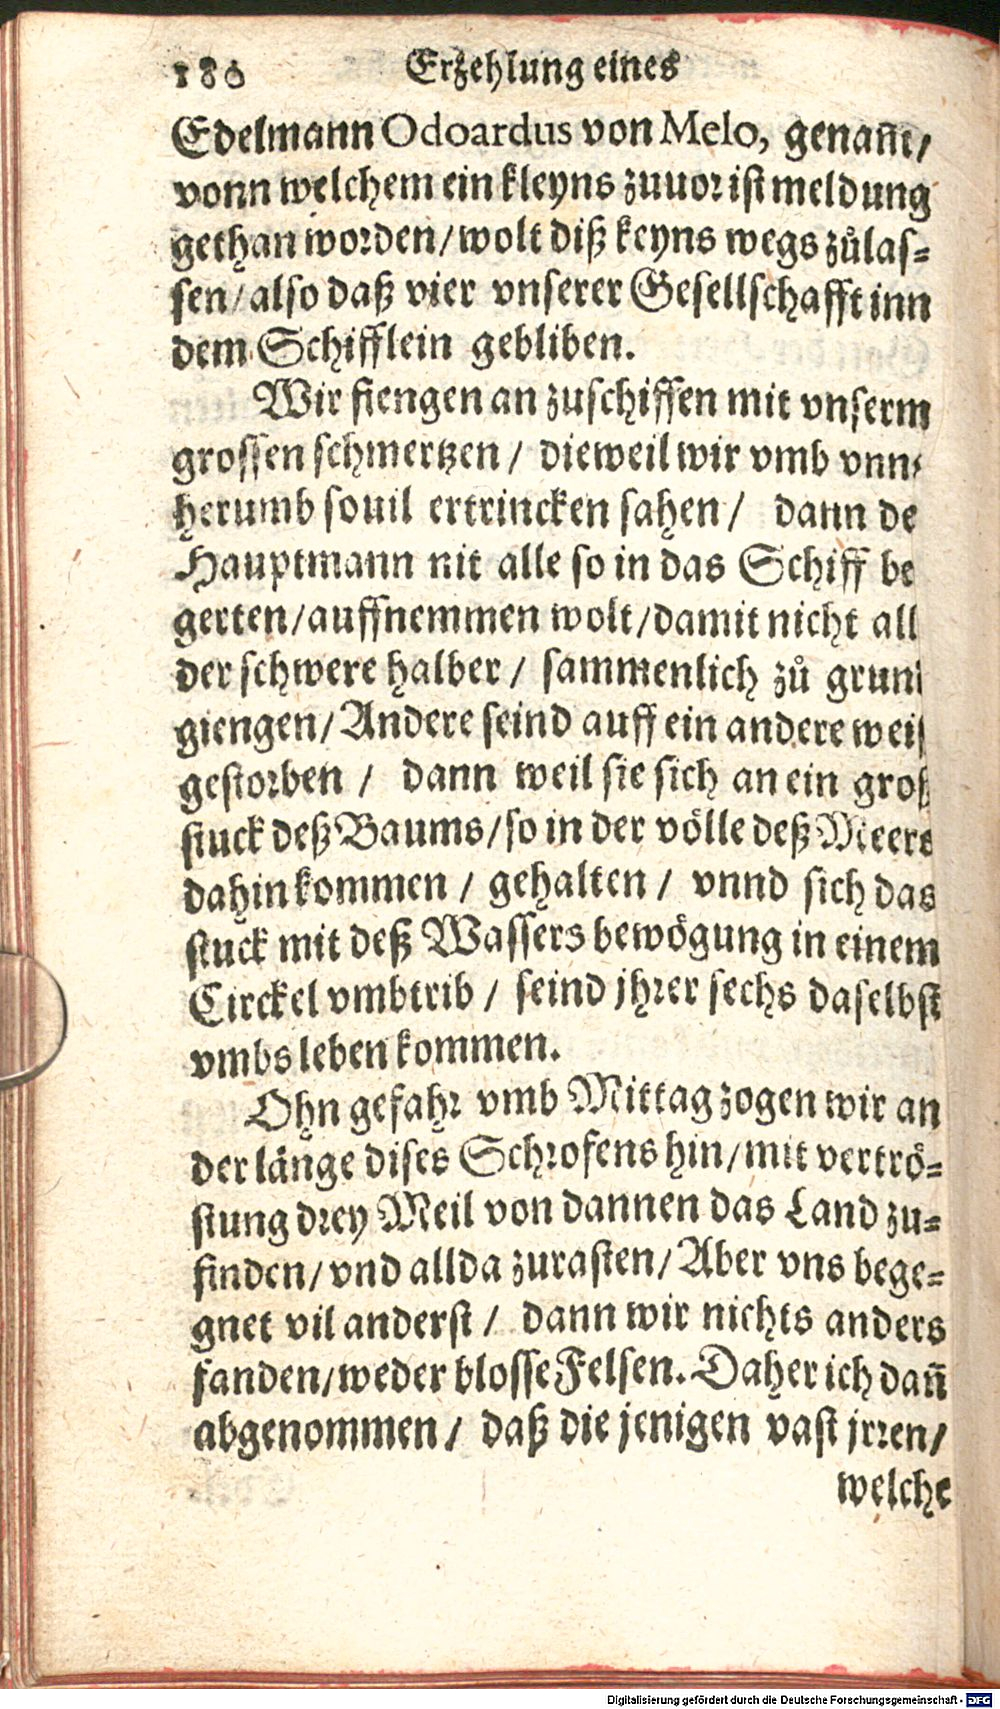 180 Erzehlung eines
Edelmann Odoardus von Melo, genañt/
vonn welchem ein kleyns zuuor ist meldung
gethan worden/wolt diß keyns wegs zůlas=
sen/also daß vier vnserer Gesellschafft inn
dem Schifflein gebliben.
Wir fiengen an zuschiffen mit vnserm
grossen schmertzen / dieweil wir vmb vnn
herumb souil ertrincken sahen / dann de
Hauptmann nit alle so in das Schiff be
gerten/auffnemmen wolt/damit nicht all
der schwere halber / sammenlich zů grun
giengen/Andere seind auff ein andere weiß
gestorben / dann weil sie sich an ein groß
stuck deß Baums/so in der völle deß Meers
dahin kommen / gehalten / vnnd sich das
stuck mit deß Wassers bewögung in einem
Circkel vmbtrib / seind jhrer sechs daselbst
vmbs leben kommen.
Ohn gefahr vmb Mittag zogen wir an
der länge dises Schrofens hin/mit vertrö=
stung drey Meil von dannen das Land zu=
finden/vnd allda zurasten/Aber vns bege=
gnet vil anderst / dann wir nichts anders
fanden/weder blosse Felsen. Daher ich dañ
abgenommen / daß die jenigen vast jrren/
welche
Digitalisierung gefördert durch die Deutsche Forschungsgemeinschaft - DFG